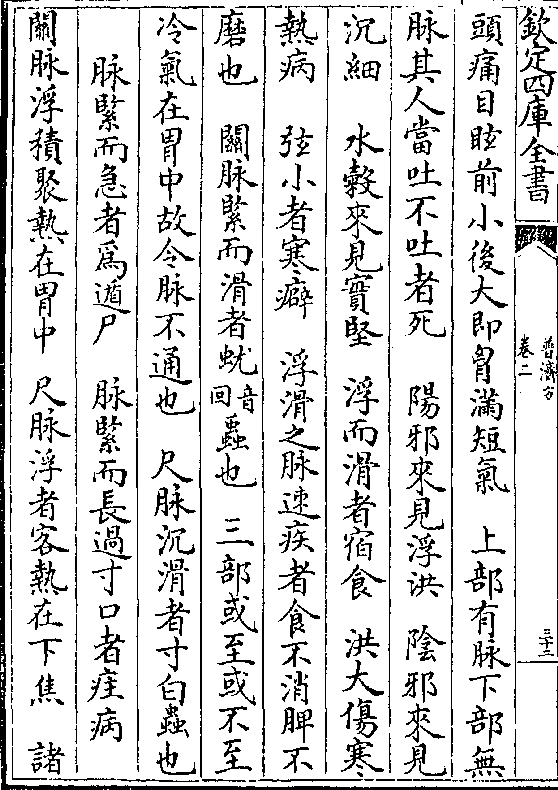 欽定四庫全書
普濟方
卷二
三十二
頭痛目眩前小後大即胷滿短氣 上部有脉下部無
脉其人當吐不吐者死 陽邪來見浮洪 陰邪來見
沉細 水穀來見實堅 浮而滑者宿食 洪大傷寒
熱病 弦小者寒癖 浮滑之脉速疾者食不消脾不
磨也 關脉緊而滑者蚘音回蟲也 三部或至或不至
冷氣在胃中故令脉不通也 尺脉沉滑者寸白蟲也
脉緊而急者為遁尸 脉緊而長過寸口者疰病
關脉浮積聚熱在胃中 尺脉浮者客熱在下焦 諸